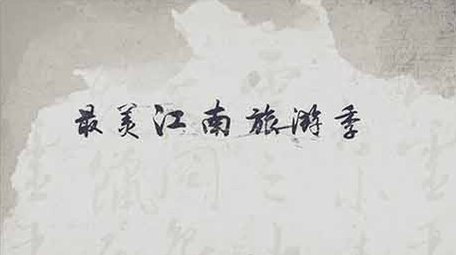 最美江南旅游季